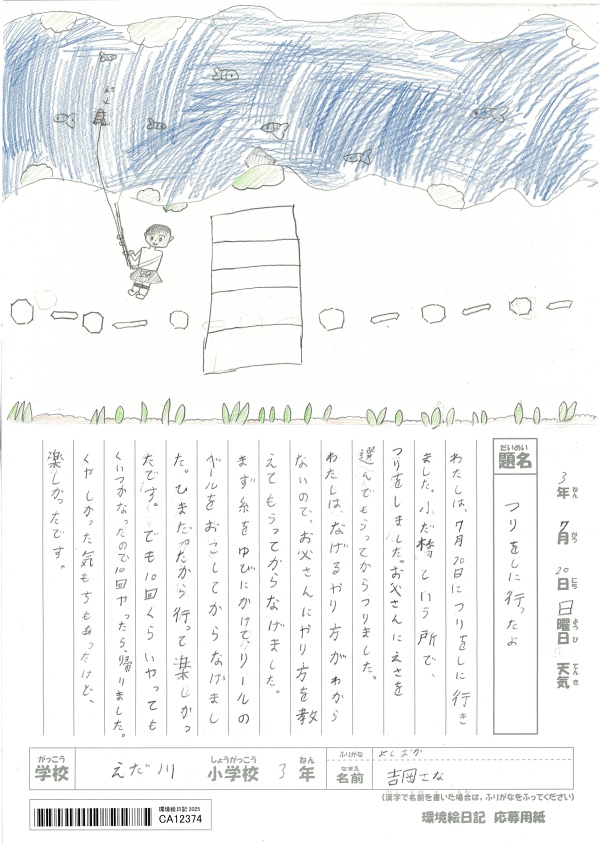 3年 7月 20日 日曜日 天気
ねん がつ にち ようび てんき
だいめい
題名
つりをしに行ったよ
わたしは、7月20日につりをしに行き
ました。小だ橋という所で、
つりをしました。お父さんにえさを
選んでもらってからつりました。
わたしは、なげるやり方がわから
ないので、お父さんにやり方を教
えてもらってからなげました。
まず糸をゆびにかけて、リールの
ベールをおこしてからなげまし
た。ひまだったから行って楽しかっ
たです。でも10回くらいやっても
くいつかなったので10回やったら、帰りました。
くやしかった気もちもあったけど、
楽しかったです。
がっこう しょうがっこう ねん
学校 えだ川 小学校 3年
ふりがな よしおか
なまえ
名前 吉岡さな
(漢字で名前を書いた場合は、ふりがなをふってください)
環境絵日記 応募用紙
環境絵日記 2025
CA12374